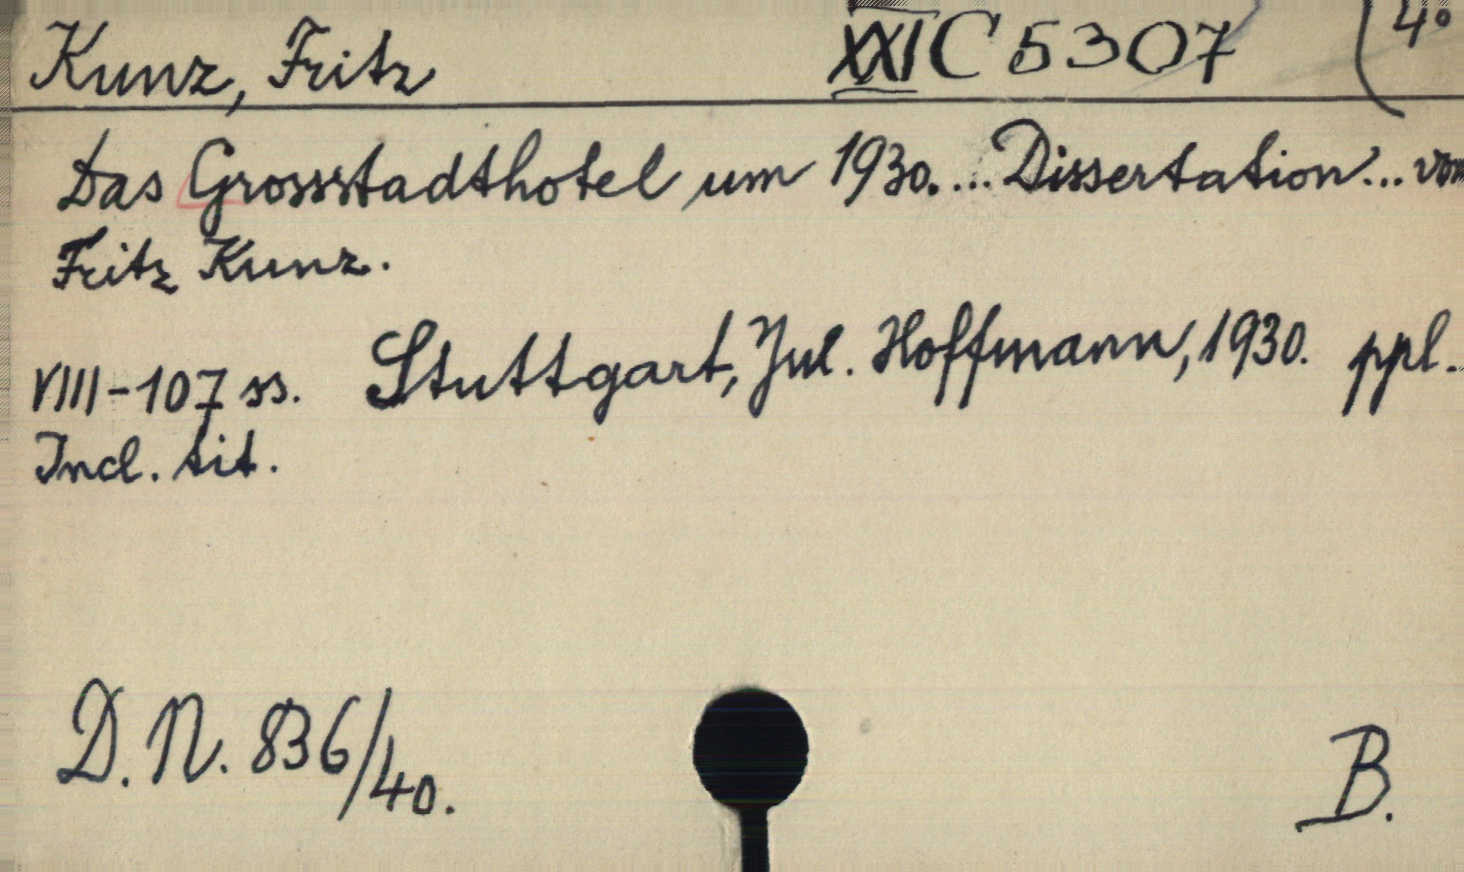 Kunz, Fritz XXI C 5307 (4°
Das Grossstadthotel um 1930.... Dissertation... von
Fritz Kunz.
VIII-107 ss. Stuttgart, Jul. Hoffmann, 1930. ppl.
Incl. tit.
D. N. 836/40. B.